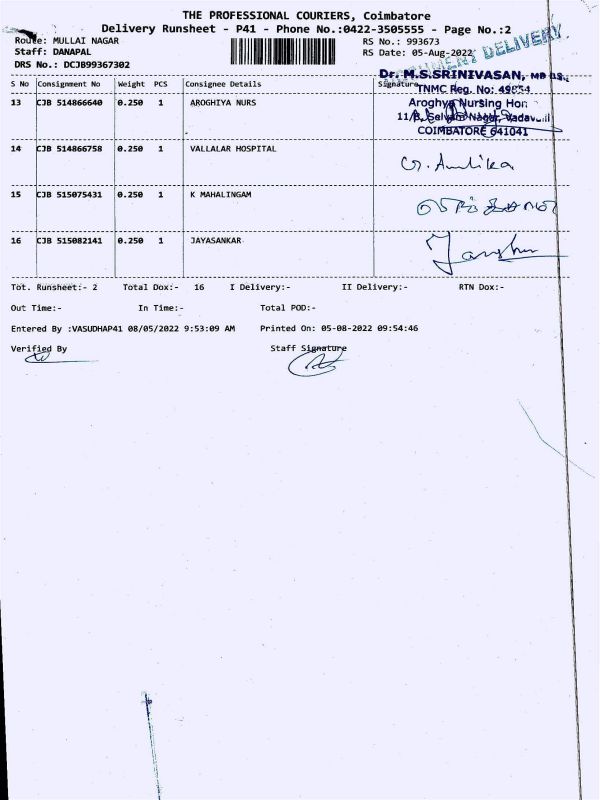 THE PROFESSIONAL COURIERS, Coimbatore
Delivery Runsheet - P41 - Phone No.:0422-3505555 - Page No.:2
Route: MULLAI NAGAR
RS No.: 993673
Staff: DANAPAL
RS Date: 05-Aug-2022
DELIVERY
DRS No.: DCJB99367302
Dr. M.S.SRINIVASAN, MB BS.,
S No Consignment No Weight PCS Consignee Details Signature
TNMC Reg. No: 49834
13 CJB 514866640 0.250 1 AROGHIYA NURS
Aroghya Nursing Hom
11/B, Selvam Nagar, Vadavalli
COIMBATORE 641041
14 CJB 514866758 0.250 1 VALLALAR HOSPITAL
15 CJB 515075431 0.250 1 K MAHALINGAM
16 CJB 515082141 0.250 1 JAYASANKAR
Tot. Runsheet:- 2 Total Dox:- 16 I Delivery:- II Delivery:- RTN Dox:-
Out Time:- In Time:- Total POD:-
Entered By :VASUDHAP41 08/05/2022 9:53:09 AM Printed On: 05-08-2022 09:54:46
Verified By Staff Signature